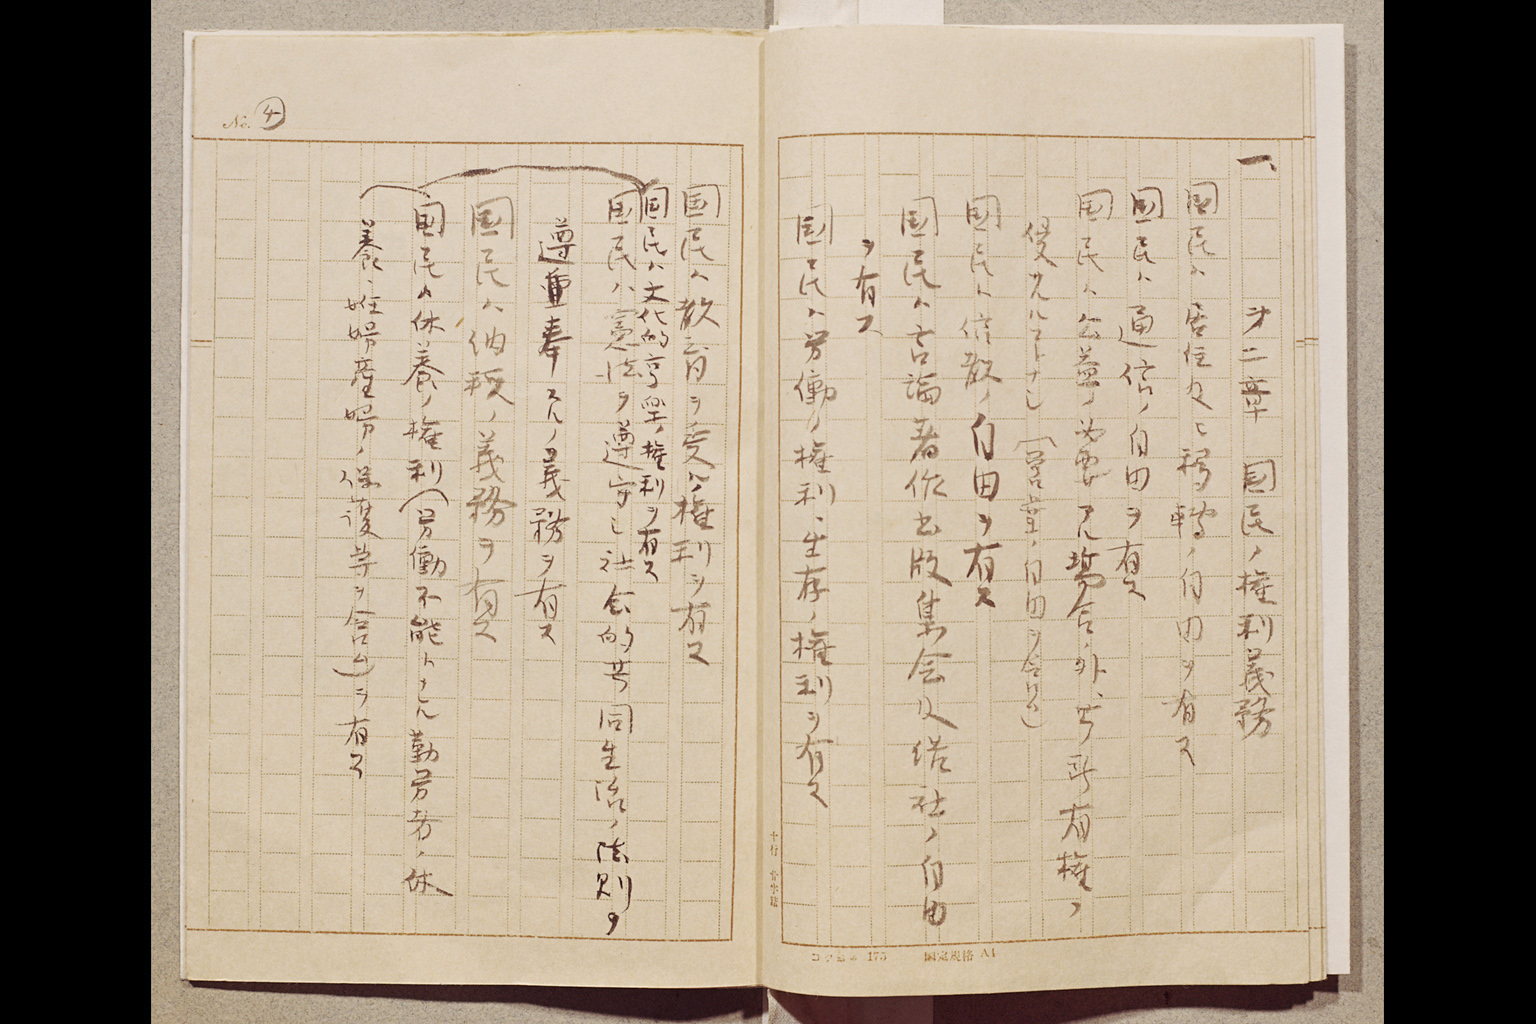 一、
才二章 国民ノ権利義務
国民ハ居住及ビ移轉ノ自由ヲ有ス
国民ハ通信ノ自由ヲ有ス
国民ハ公益ノ必要アル場合ノ外、其所有権ノ
侵サルルコトナシ(営業ノ自由ヲ含ム)
国民ハ信教ノ自由ヲ有ス
国民ハ言論著作出版集会及結社ノ自由
ヲ有ス
国民ハ労働ノ権利、生存ノ権利ヲ有ス
十行
コクヨ 175 国定規格 A4
No. ④
国民ハ教育ヲ受ケル権利ヲ有ス
国民ハ文化的享楽ノ権利ヲ有ス
国民ハ憲法ヲ遵守シ社会的共同生活ノ法則ヲ
遵重奉スルノ義務ヲ有ス
国民ハ納税ノ義務ヲ有ス
国民ハ休養ノ権利(労働不能トナレル勤労者ノ休
養、妊婦産婦ノ保護等ヲ含ム)ヲ有ス